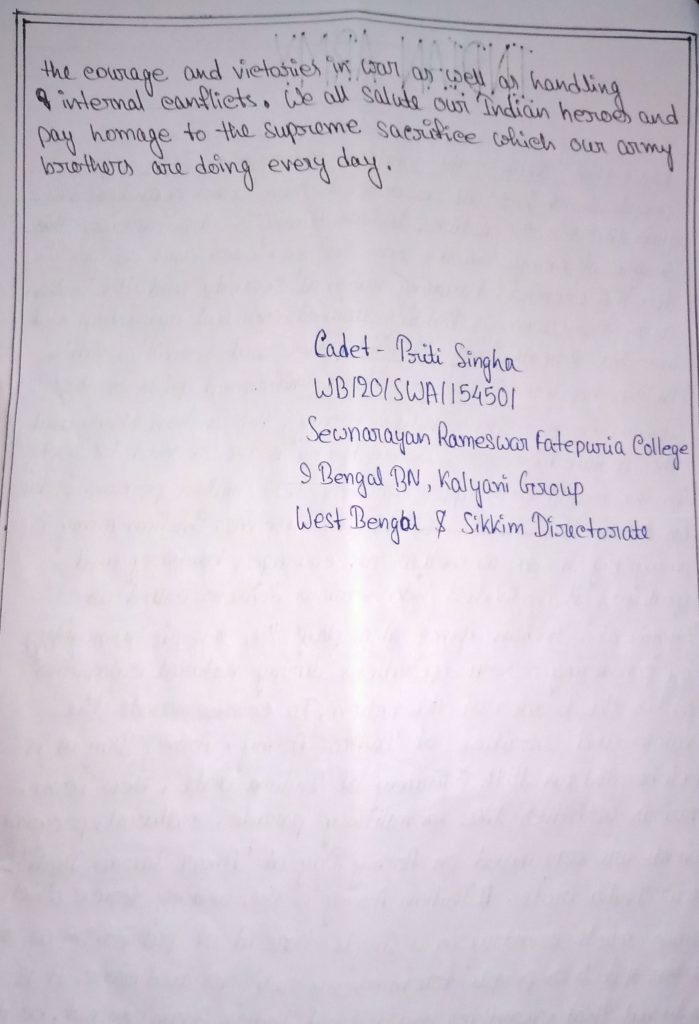 the courage and victories in war as well as handling
& internal canflicts. We all salute our Indian heroes and
pay homage to the supreme sacrifice which our army
brothers are doing every day.
Cadet - Priti Singha
WB/20/SWA/154501
Sewnarayan Rameswar Fatepuria College
9 Bengal BN, Kalyani Group
West Bengal & Sikkim Directorate